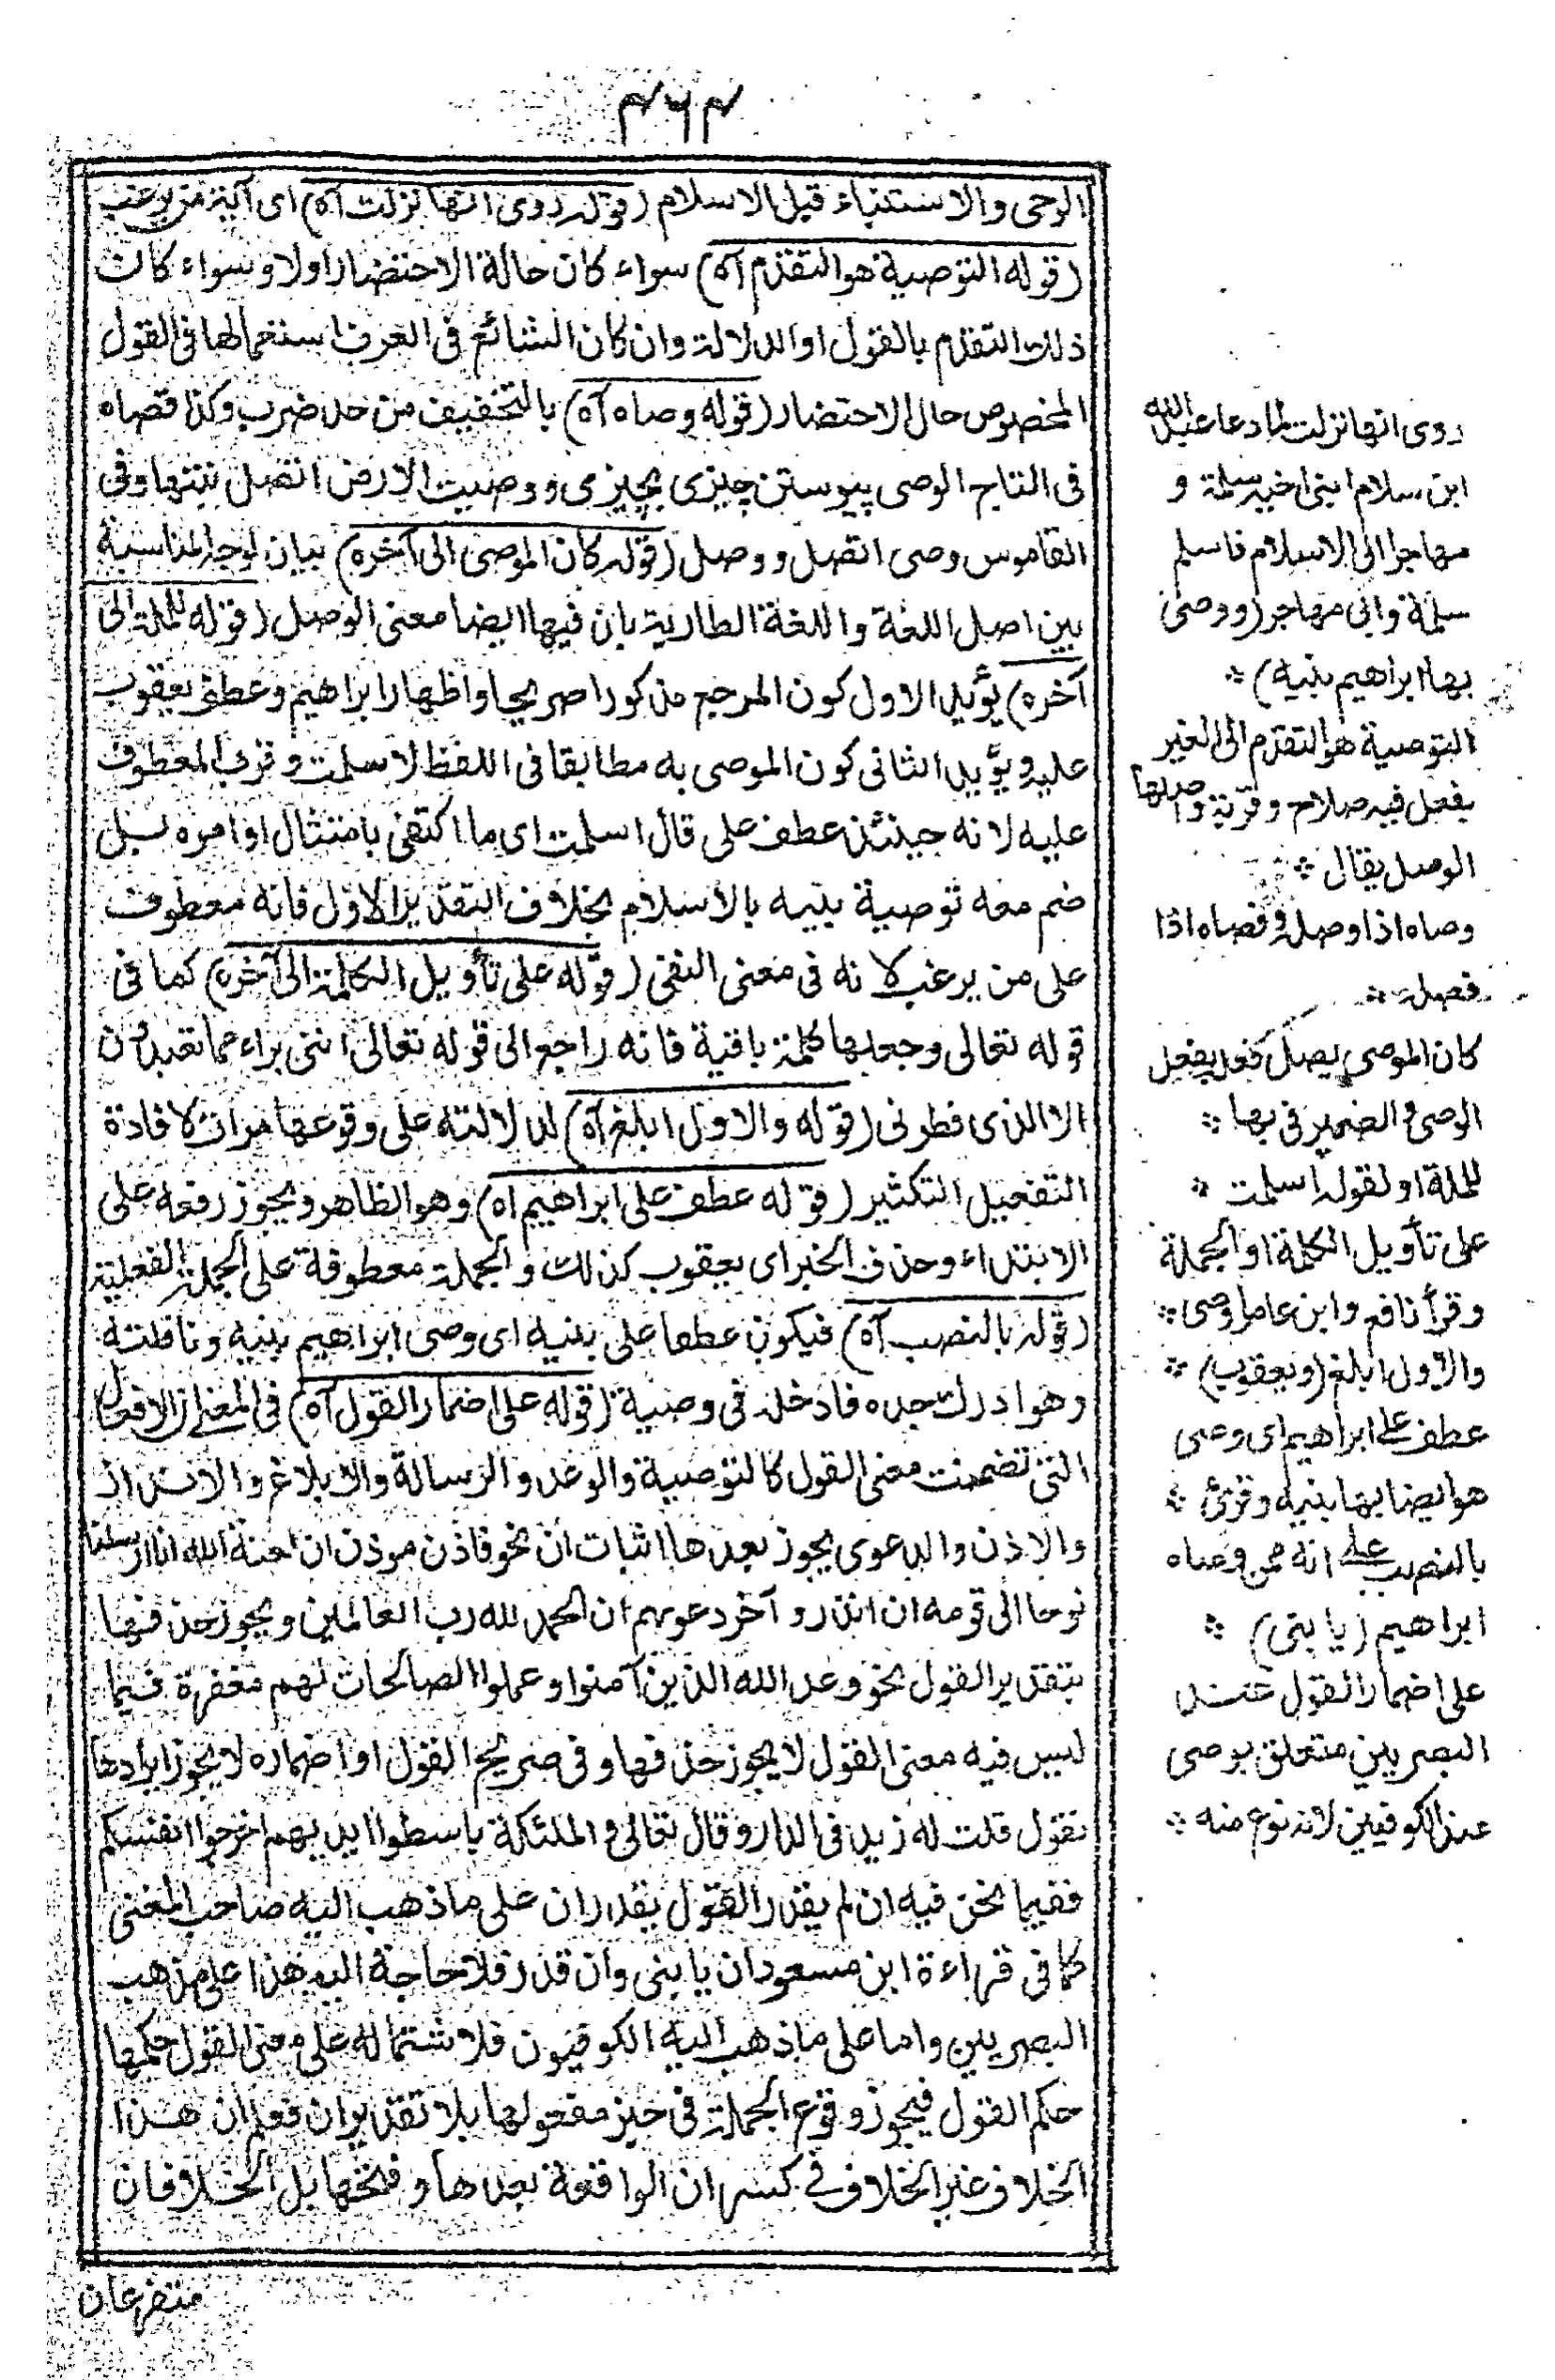 ۴۶۴
الوحى والاستنباء قبل الاسلام (قوله روى انها نزلت آه) اى آية من يرغب
(قوله التوصية هو التقدم آه) سواء كان حالة الاحتضار اولا وسواء كان
ذلك التقدم بالقول او الدلالة وان كان الشائع فى العرف استعمالها فى القول
المخصوص حال الاحتضار (قوله وصاه آه) بالتخفيف من حد ضرب وكذا فصاه
فى التاج الوصى پيوستن چيزى بچيزى ووصيت الارض اتصل نبتها وفى
القاموس وصى اتصل ووصل (قوله كان الموصى الى آخره) بيان لوجه المناسبة
بين اصل اللغة واللغة الطارية بان فيها ايضا معنى الوصل (قوله للملة الى
آخره) يؤيد الاول كون المرجع مذكورا صريحا واظهار ابراهيم وعطف يعقوب
عليه ويؤيد الثانى كون الموصى به مطابقا فى اللفظ لاسلمت وقرب المعطوف
عليه لانه حينئذ عطف على قال اسلمت اى ما اكتفى بامتثال اوامره بل
ضم معه توصية بنيه بالاسلام بخلاف التقدير الاول فانه معطوف
على من يرغب لانه فى معنى النفى (قوله على تأويل الكلمة الى آخره) كما فى
قوله تعالى وجعلها كلمة باقية فانه راجع الى قوله تعالى اننى براء مما تعبدون
الا الذى فطرنى (قوله والاول ابلغ آه) لدلالته على وقوعها مرات لافادة
التفعيل التكثير (قوله عطف على ابراهيم اه) وهو الظاهر ويجوز رفعه على
الابتداء وحذف الخبر اى يعقوب كذلك والجملة معطوفة على الجملة الفعلية
(قوله بالنصب آه) فيكون عطفا على بنيه اى وصى ابراهيم بنيه ونافلته
وهو ادرك جده فادخله فى وصية (قوله على اضمار القول آه) فى المغنى ان الافعال
التى تضمنت معنى القول كالتوصية والوعد والرسالة والابلاغ والانذار
والاذن والدعوى يجوز بعدها اثبات ان نحو فاذن موذن ان لعنة الله انا ارسلنا
نوحا الى قومه ان انذر و آخر دعويهم ان الحمد لله رب العالمين ويجوز حذفها
بتقدير القول نحو وعد الله الذين آمنوا وعملوا الصالحات لهم مغفرة فيما
ليس فيه معنى القول لا يجوز حذفها وفى صريح القول او اضماره لا يجوز ايرادها
نقول قلت له زيد فى الدار وقال تعالى و الملئكة باسطوا ايديهم اخرجوا انفسكم
ففيما نحن فيه ان لم يقدر القول يقدر ان على ما ذهب اليه صاحب المغنى
كما فى قراءة ابن مسعود ان يا بنى وان قدر فلا حاجة اليه هذا على مذهب
البصريين واما على ما ذهب اليه الكوفيون فلاشتماله على معنى القول حكمها
حكم القول فيجوز وقوع الجملة فى حيز مفعولها بلا تقدير ان فعلم ان هذا
الخلاف غير الخلاف فى كسر ان الواقعة بعدها وفتحها بل الخلافان
متفرعان
روى انها نزلت لما دعا عبد الله
ابن سلام ابنى اخيه سلمة و
مهاجرا الى الاسلام فاسلم
سلمة وابى مهاجر (ووصى
بها ابراهيم بنيه) *
التوصية هو التقدم الى الغير
بفعل فيه صلاح وقربة واصلها
الوصل يقال *
وصاه اذا وصله وفصاه اذا
فصله *
كان الموصى يصل فعله بفعل
الوصى و الضمير فى بها *
للملة او لقوله اسلمت *
على تأويل الكلمة او الجملة
وقرأ نافع وابن عامر اوصى *
والاول ابلغ (ويعقوب) *
عطف على ابراهيم اى وصى
هو ايضا بها بنيه وقرئ *
بالنصب على انه ممن وصاه
ابراهيم (يا بنى) *
على اضمار القول عند
البصريين متعلق بوصى
عند الكوفيين لانه نوع منه *